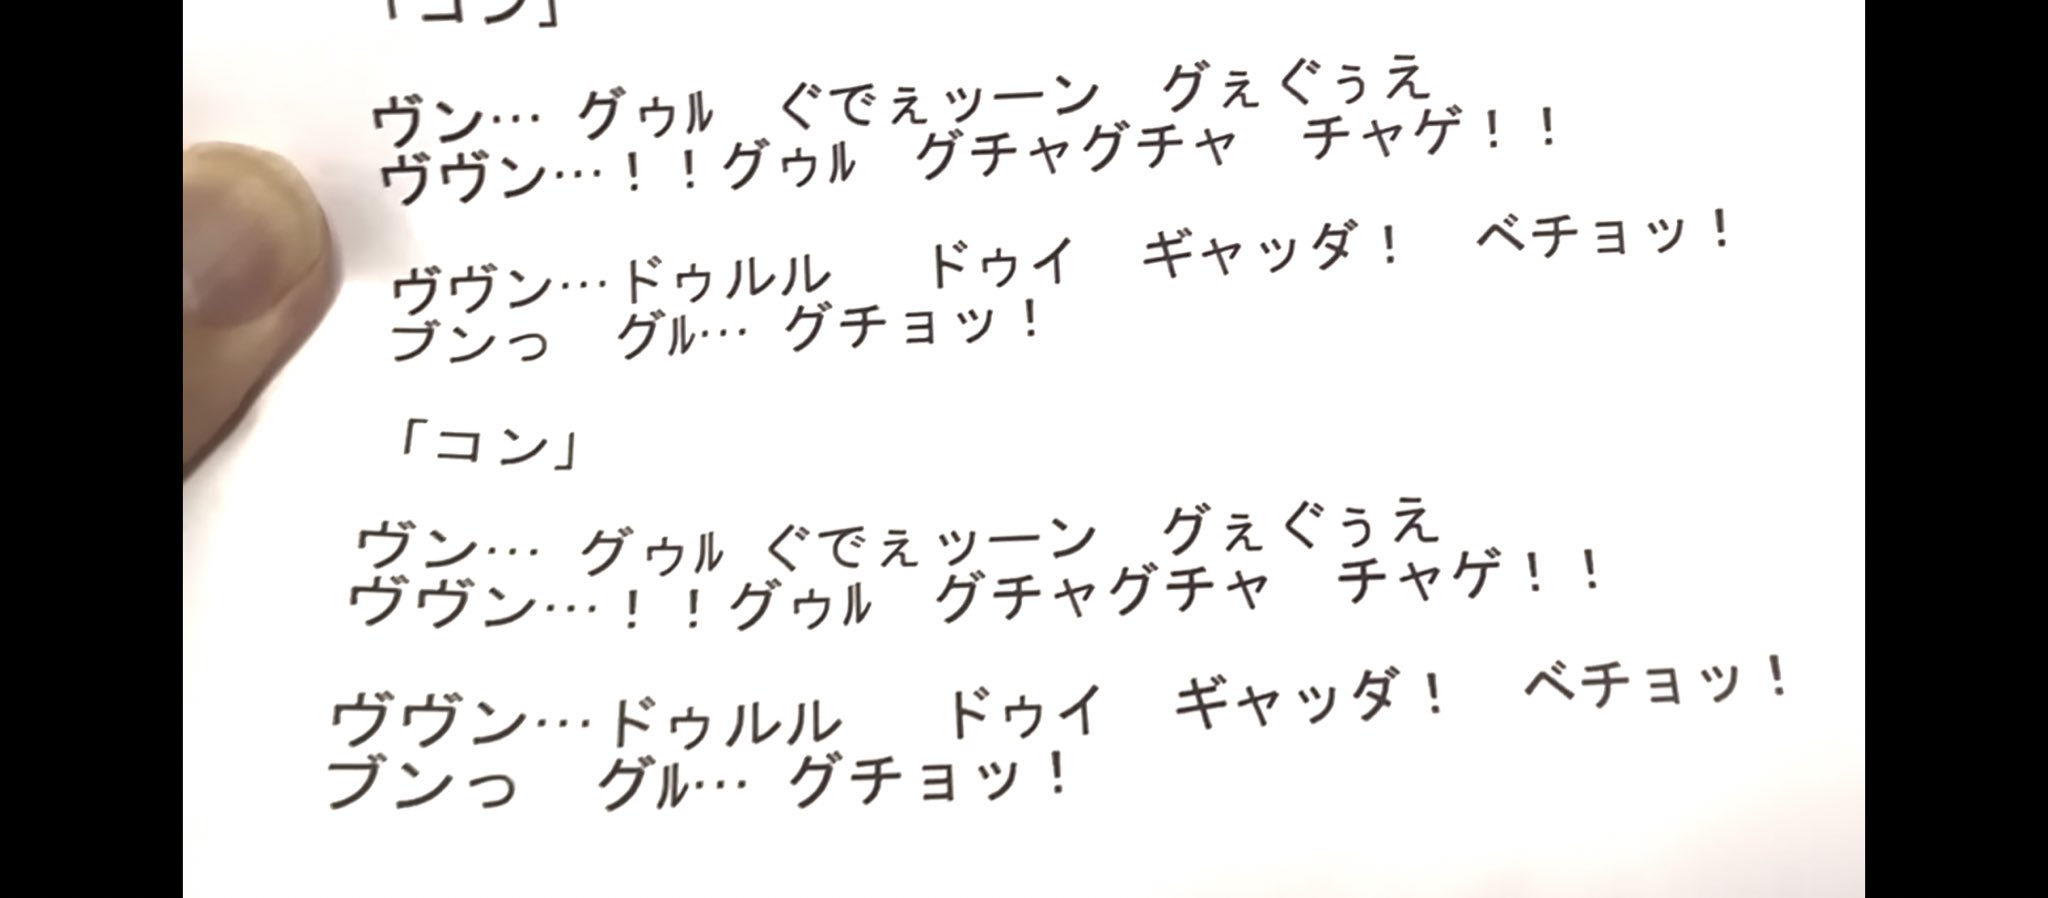 「コン」
ヴン… グゥル　ぐでぇッーン　グぇぐぅえ
ヴヴン…！！グゥル　グチャグチャ　チャゲ！！
ヴヴン…ドゥルル　ドゥイ　ギャッダ！　ベチョッ！
ブンっ　グル… グチョッ！
「コン」
ヴン… グゥル ぐでぇッーン　グぇぐぅえ
ヴヴン…！！グゥル　グチャグチャ　チャゲ！！
ヴヴン…ドゥルル　ドゥイ　ギャッダ！　ベチョッ！
ブンっ　グル… グチョッ！